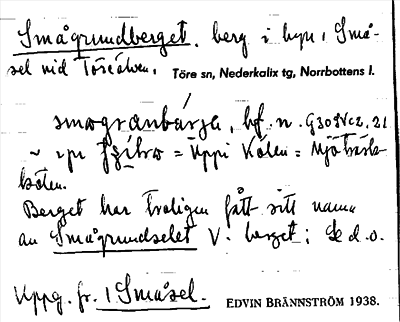 Smågrundberget. berg i byn 1 Små-
sel vid Töreälven. Töre sn, Nederkalix tg, Norrbottens l.
smogrənbärjə, bf. n. G30
= Uppi Kölen = Mjöträsk-
kölen.
Berget har troligen fått sitt namn
av Smågrundselet V. berget; Se d.o.
Uppg. fr. 1 Småsel. EDVIN BRÄNNSTRÖM 1938.